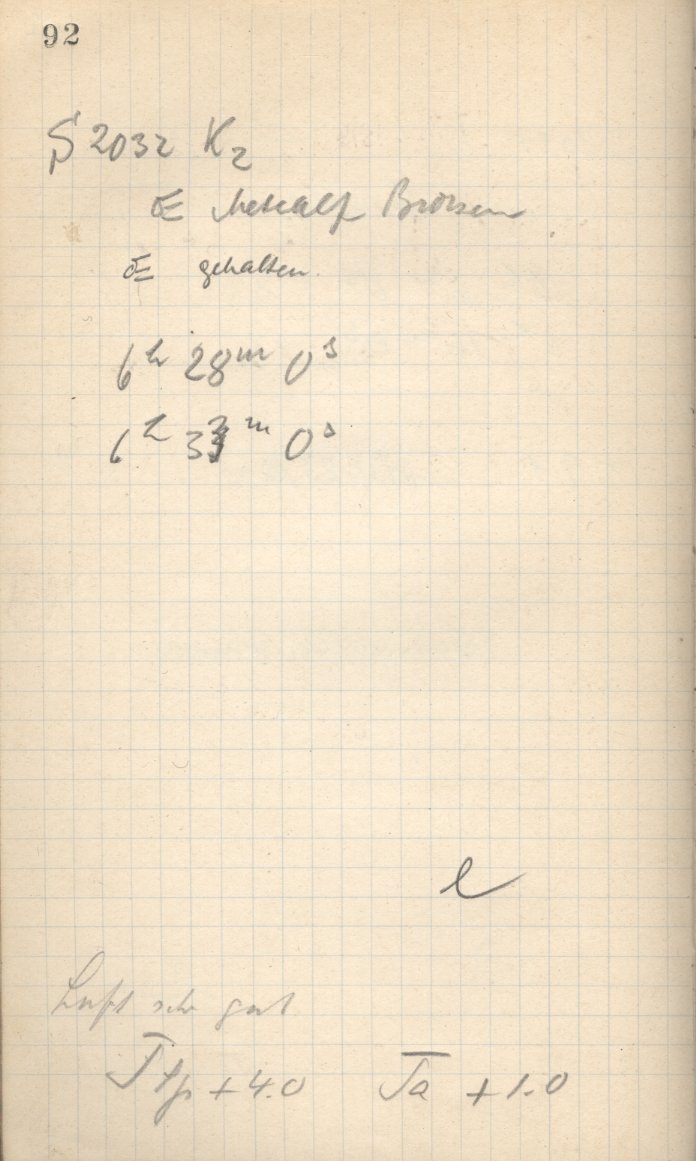 92
S 2032 K2
Œ Metcalf Brorsen
Œ gehalten.
6h 28m 0s
6h 33m 0s
l
Luft sehr gut
Ttp +4.0 Ta +1.0